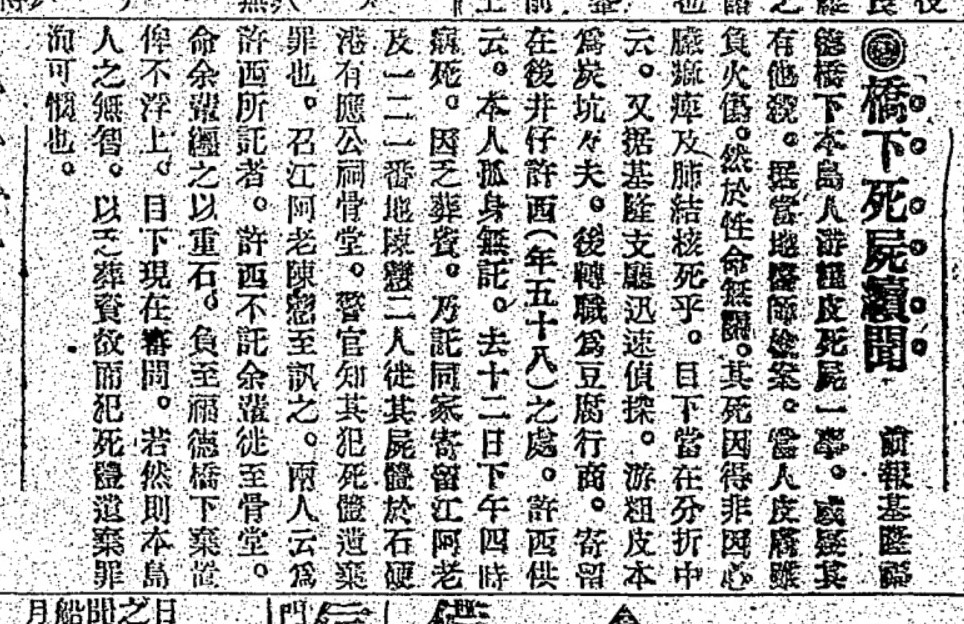 ◎橋下死屍續聞　前報基隆福
德橋下本島人游粗皮死屍一事。或疑其
有他殺。据當地醫師檢案。當人皮膚雖
負火傷。然於性命無關。其死因得非因心
臟痲痺及肺結核死乎。目下當在分折中
云。又据基隆支廳迅速偵探。游粗皮本
爲炭坑々夫。後轉職爲豆腐行商。寄留
在後井仔許西(年五十八)之處。許西供
云。本人孤身無託。去十二日下午四時
病死。因乏葬資。乃託同家寄留江阿老
及一二一番地陳戀二人徙其屍體於石硬
港有應公祠骨堂。警官知其犯死體遺棄
罪也。召江阿老陳戀至訊之。兩人云爲
許西所託者。許西不託余輩徙至骨堂。
命余輩繩之以重石。負至福德橋下棄置
俾不浮上。目下現在審問。若然則本島
人之無智。以乏葬資故而犯死體遺棄罪
洵可憫也。
日之聞船月
門